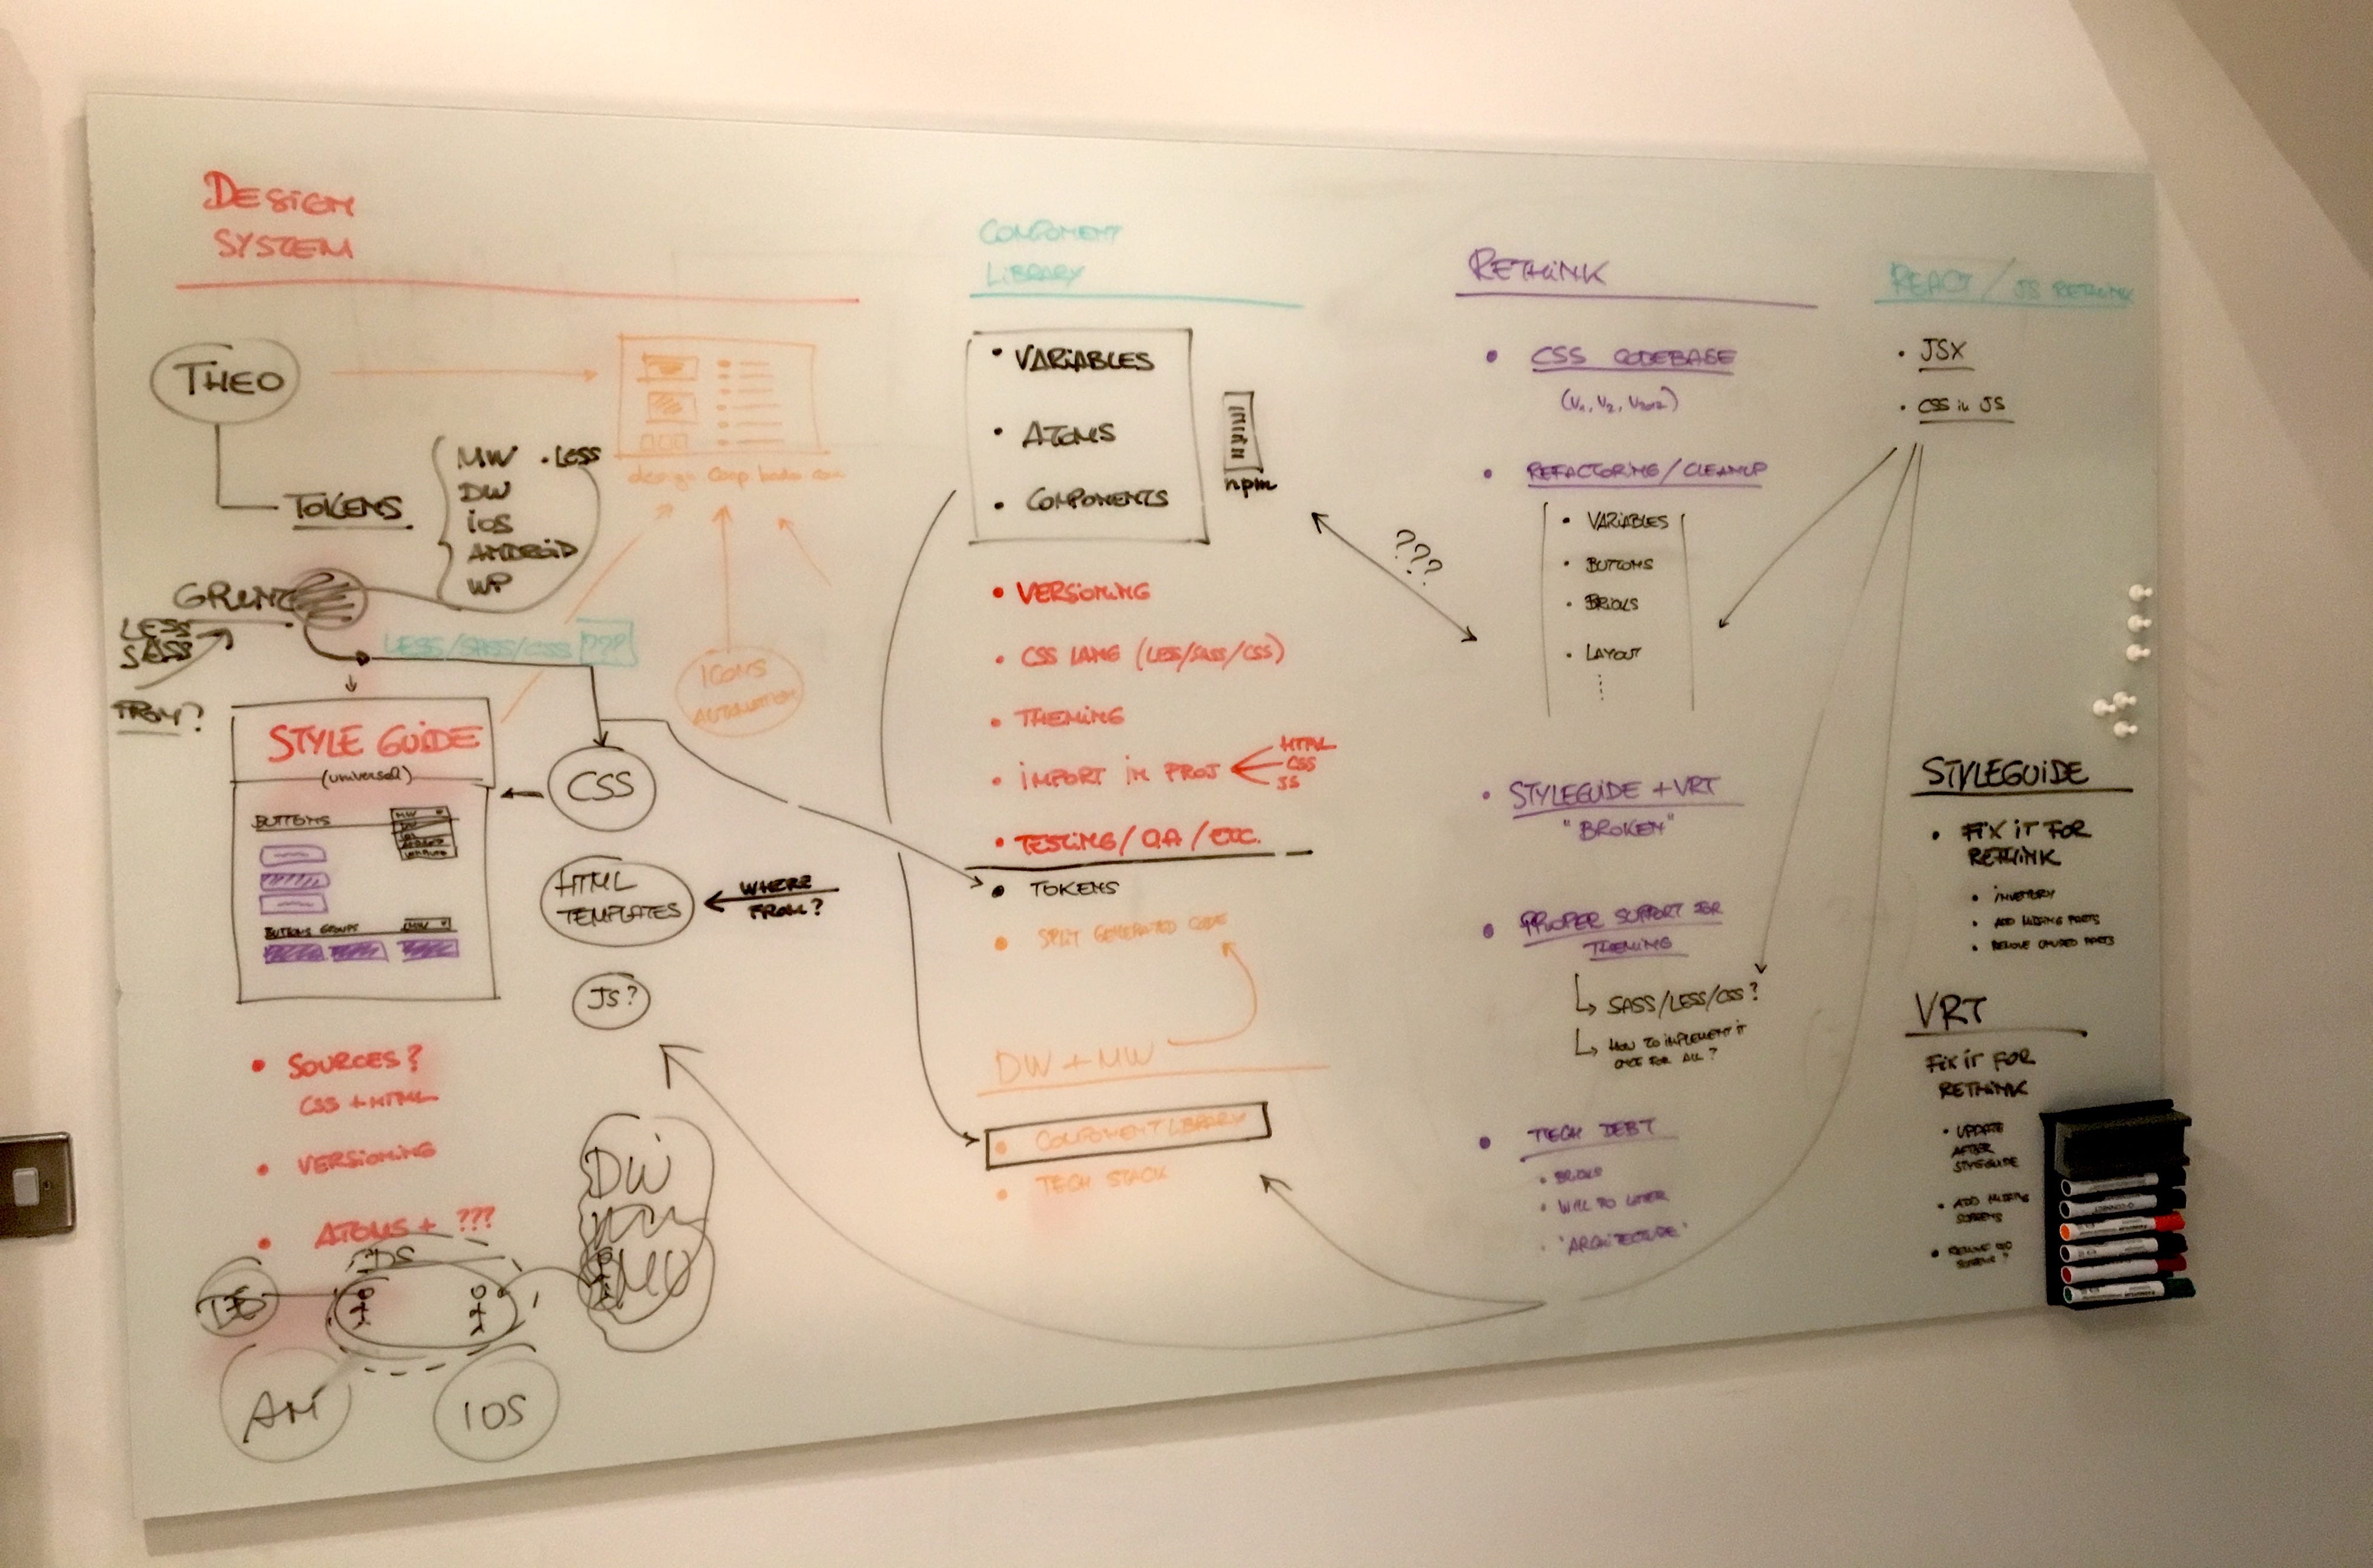 DESIGN
SYSTEM
THEO
TOKENS
MW .LESS
DW
iOS
ANDROID
WP
GRUNT
LESS
SASS
FROM?
LESS/SASS/CSS ???
ICONS
AUTOMATION
STYLE GUIDE
(universal)
BUTTONS
MW
DW
iOS
ANDROID
BUTTONS GROUPS
MW
CSS
HTML
TEMPLATES
WHERE
FROM?
JS?
• SOURCES?
CSS + HTML
• VERSIONING
• ATOMS + ???
DS
DW
AN
IOS
COMPONENT
LIBRARY
• VARIABLES
• ATOMS
• COMPONENTS
npm
• VERSIONING
• CSS LANG (LESS/SASS/CSS)
• THEMING
• IMPORT IN PROJ
HTML
CSS
JS
• TESTING/QA/EXC.
• TOKENS
• SPLIT GENERATED CODE
DW + MW
• COMPONENT LIBRARY
• TECH STACK
???
RETHINK
• CSS CODEBASE
• REFACTORING/CLEANUP
• VARIABLES
• BUTTONS
• BRICKS
• LAYOUT
• STYLEGUIDE + VRT
"BROKEN"
• PROPER SUPPORT FOR
THEMING
SASS/LESS/CSS?
HOW TO IMPLEMENT IT
ONCE FOR ALL?
• TECH DEBT
• BRICKS
• "ARCHITECTURE"
REACT / JS RETHINK
• JSX
• CSS in JS
STYLEGUIDE
• FIX IT FOR
RETHINK
• INVENTORY
• ADD MISSING PARTS
• REMOVE UNUSED PARTS
VRT
FIX IT FOR
RETHINK
• UPDATE
AFTER
STYLEGUIDE
• ADD MISSING
SCREENS